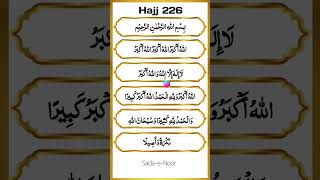 Hajj 226
بِسْمِ اللهِ الرَّحْمٰنِ الرَّحِيْمِ
اَللهُ اَكْبَرُ اللهُ اَكْبَرُ اللهُ اَكْبَرُ
لَا إِلٰهَ إِلَّا اللهُ وَاللهُ اَكْبَرُ
اَللهُ اَكْبَرُ وَلِلّٰهِ الْحَمْدُ اللهُ اَكْبَرُ كَبِيْرًا
وَالْحَمْدُ لِلّٰهِ كَثِيْرًا وَسُبْحَانَ اللهِ
بُكْرَةً وَاَصِيْلًا
Sada-e-Noor